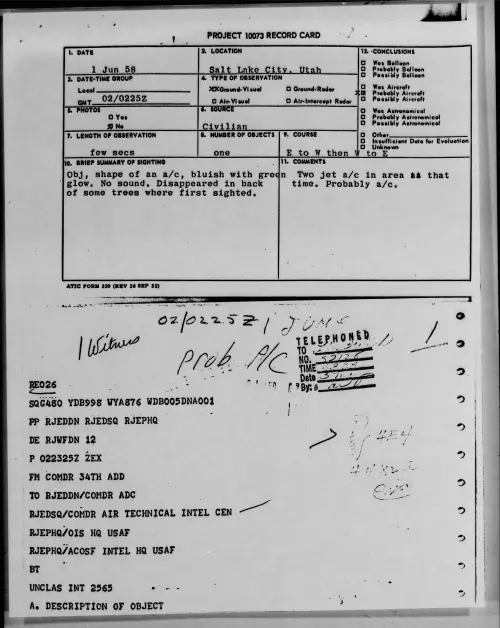 PROJECT 10073 RECORD CARD
1. DATE
1 Jun 58
2. LOCATION
Salt Lake City, Utah
12. CONCLUSIONS
Was Balloon
Probably Balloon
Possibly Balloon
XX Was Aircraft
Probably Aircraft
Possibly Aircraft
Was Astronomical
Probably Astronomical
Possibly Astronomical
Other
Insufficient Data for Evaluation
Unknown
3. DATE-TIME GROUP
Local
GMT 02/0225Z
4. TYPE OF OBSERVATION
XXGround-Visual
Ground-Radar
Air-Visual
Air-Intercept Radar
5. PHOTOS
Yes
No
6. SOURCE
Civilian
7. LENGTH OF OBSERVATION
few secs
8. NUMBER OF OBJECTS
one
9. COURSE
E to W then W to E
10. BRIEF SUMMARY OF SIGHTING
Obj, shape of an a/c, bluish with green
glow. No sound. Disappeared in back
of some trees where first sighted.
11. COMMENTS
Two jet a/c in area at that
time. Probably a/c.
ATIC FORM 329 (REV 26 SEP 52)
02/0225Z 1 JUNE
1 Witness
Prob. A/C
1
TELEPHONED
TO
NO.
TIME
Date
By:
RE026
SQG480 YDB998 WYA876 WDB005DNA001
PP RJEDDN RJEDSQ RJEPHQ
DE RJWFDN 12
P 022325Z ZEX
FM COMDR 34TH ADD
TO RJEDDN/COMDR ADC
RJEDSQ/COMDR AIR TECHNICAL INTEL CEN
RJEPHQ/OIS HQ USAF
RJEPHQ/ACOSF INTEL HQ USAF
BT
UNCLAS INT 2565
A. DESCRIPTION OF OBJECT
4E4